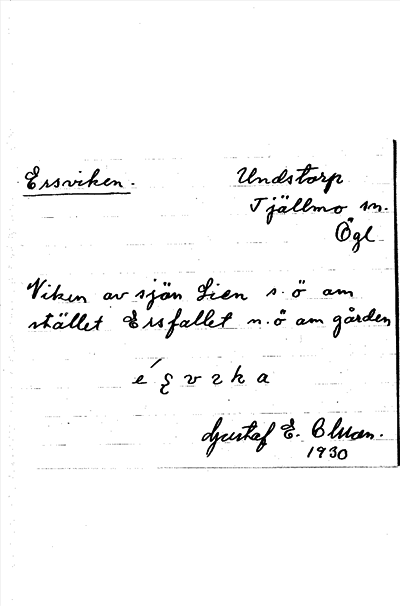 Erssviken.
Undstorp
Tjällmo sn.
Ögl
Viken av sjön Lien s.ö om
stället Erssfallet n.ö om gården
Gustaf E.
1930